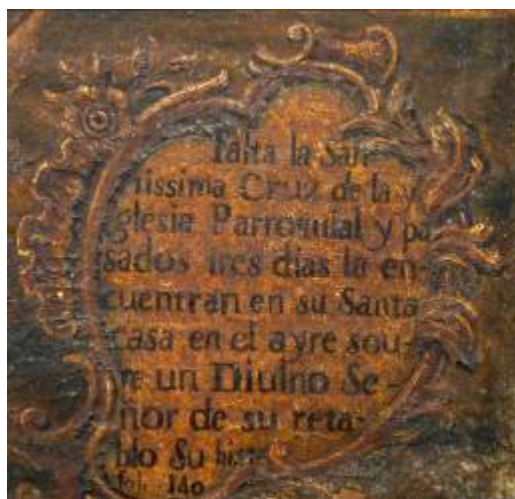 Falta la San
tissima Cruz de la y
glesia Parroquial y pa
sados tres dias la en-
cuentran en su Santa
casa en el ayre sou-
re un Diuino Se-
ñor de su reta-
blo Su hist
foli 140